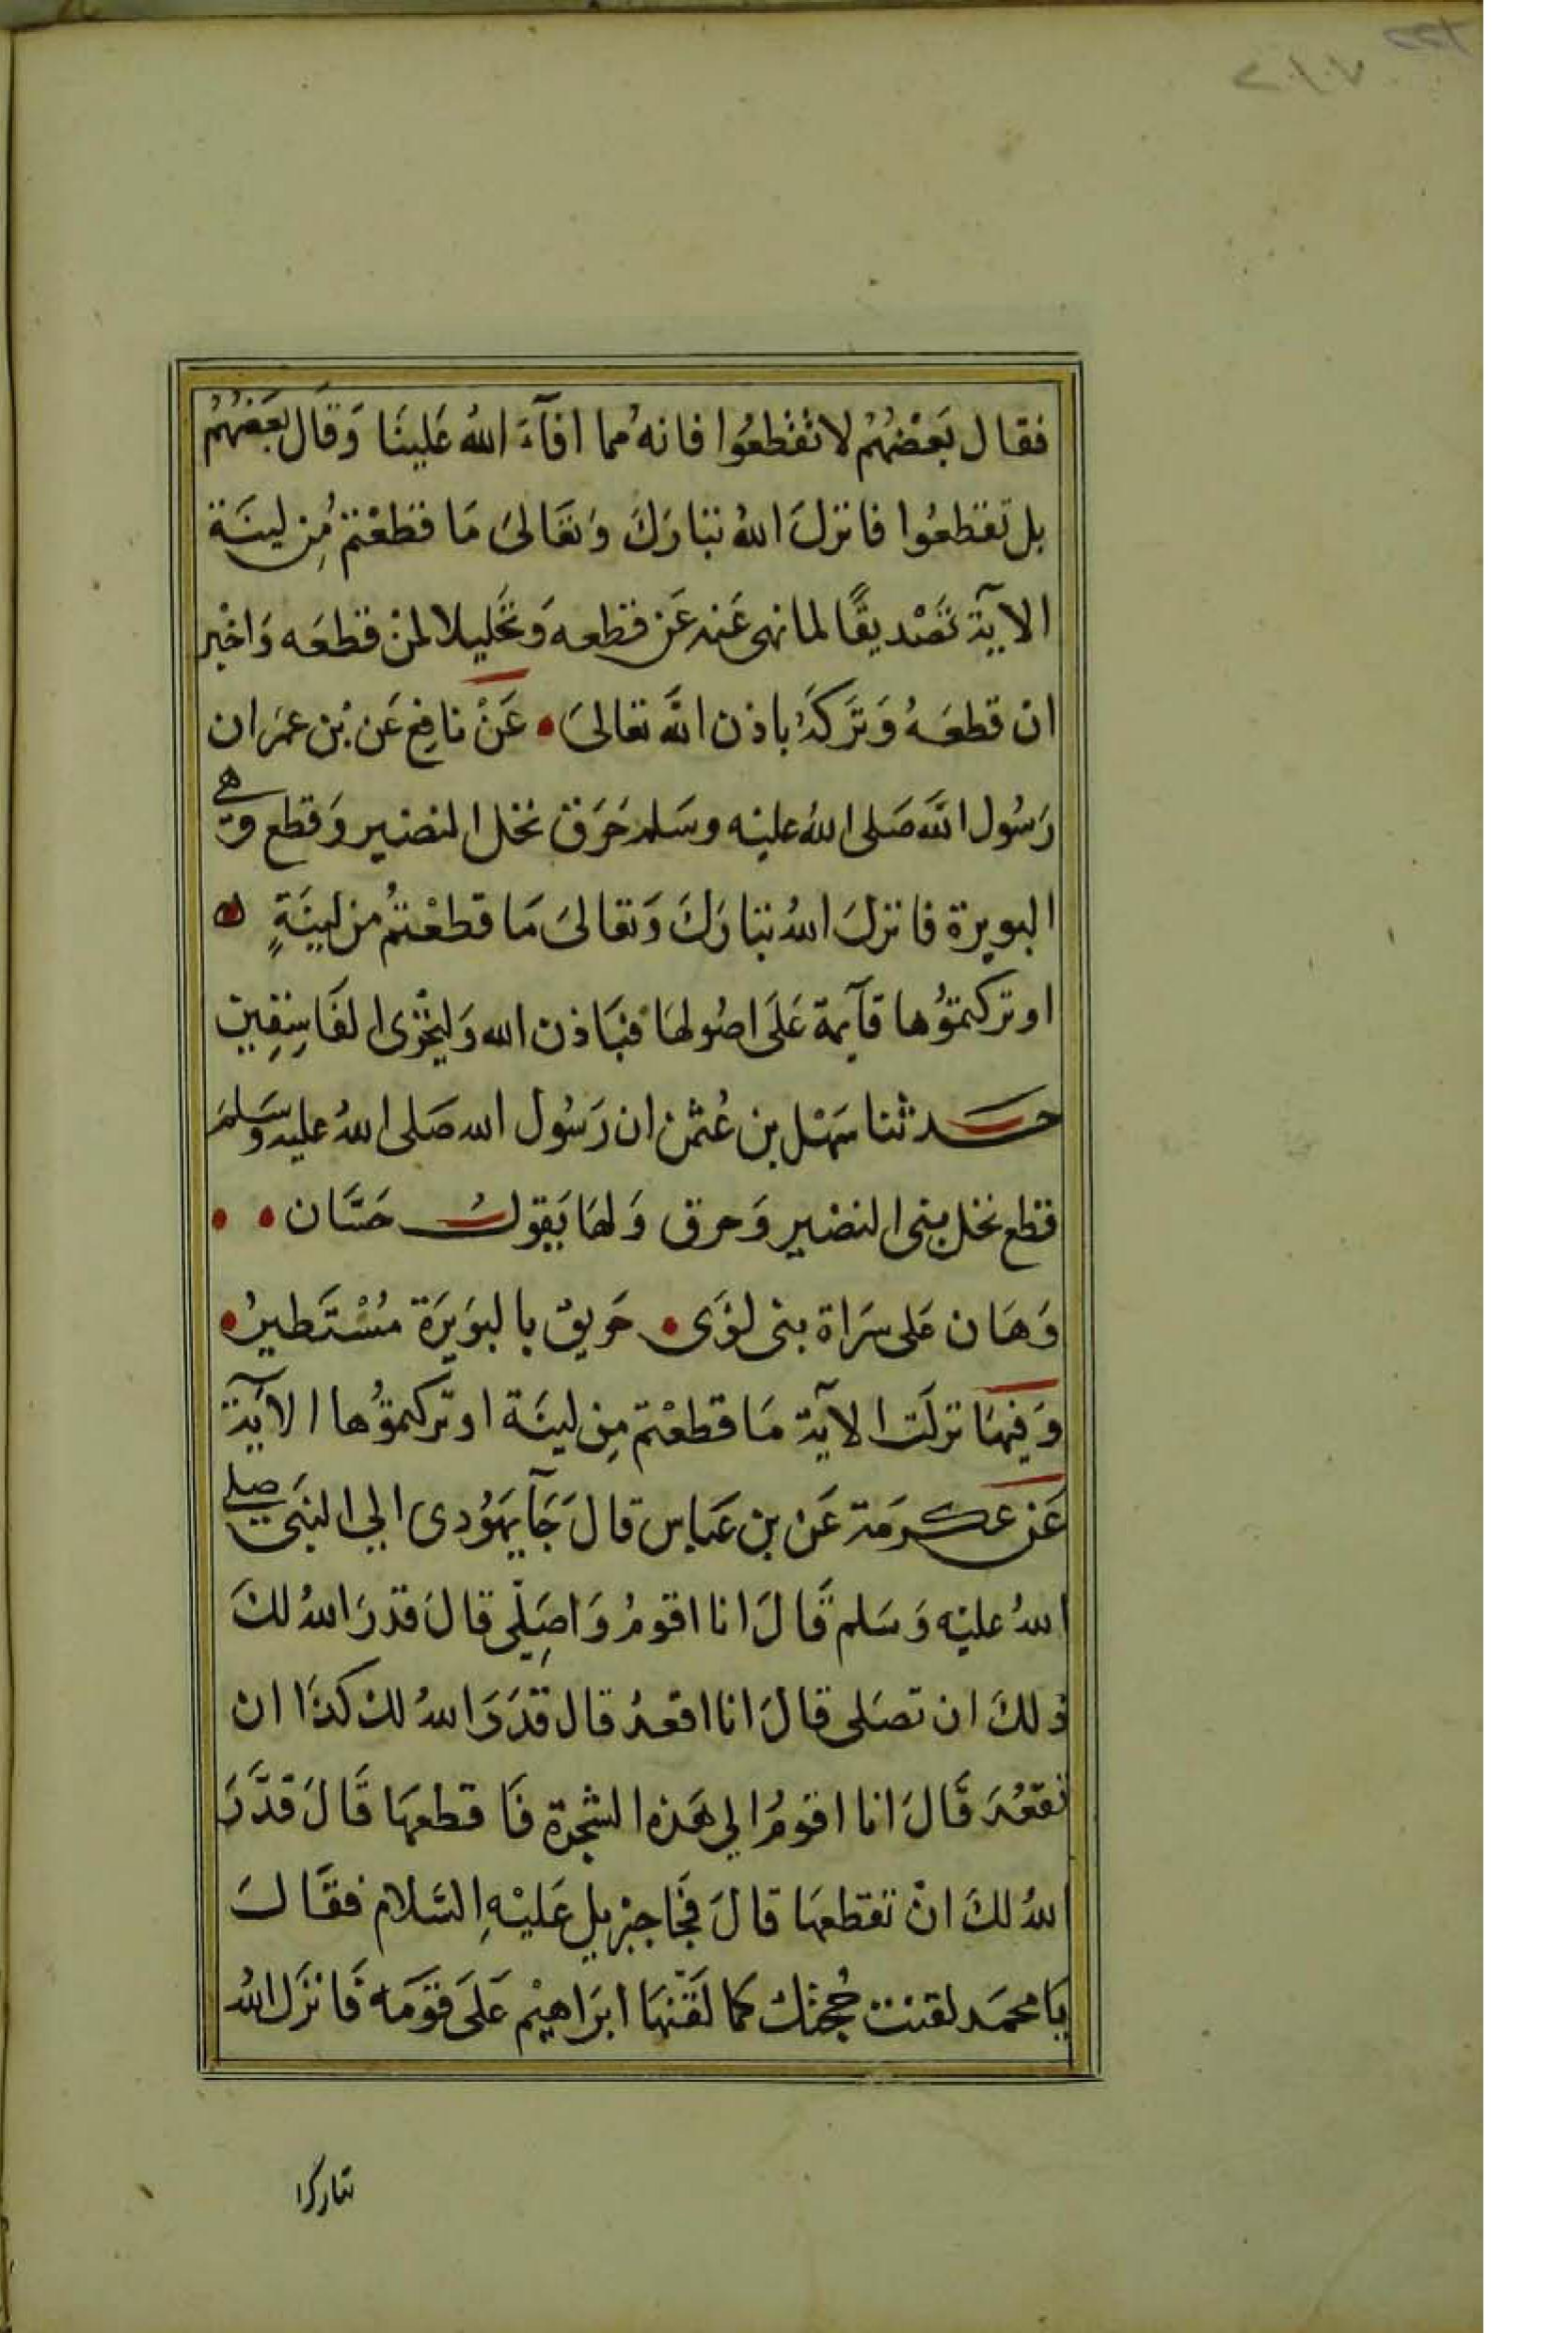 فقال بَعْضُهُمْ لا تقطعُوا فانهُ مما افآءَ اللهُ عَلينَا وَقَال بَعَضُهُمْ
بل تقطعُوا فانزلَ اللهُ تبارَكَ وَتعَالىَ مَا قطعْتمُ مِن لينَة
الآيَة تصْديقًا لما نهى عَنه عَن قطعه وَتحَليلا لمن قطعَه وَاخبْر
ان قطعَهُ وَتَركَهُ باذن اللَّه تعَالىَ • عَنْ نافِع عَن بْن عمَر ان
رَسُول اللَّه صَلى اللهُ عليْه وسَلم حَرَق نخل النضير وَقطع وَهي
البويرة فانزلَ اللهُ تبَارَكَ وَتعَالىَ مَا قطعْتمُ من لينَةٍ
او تركتموُها قآيمة عَلَى اصُولهَا فبَاذن الله وَليخْزى الفَاسِقِين
حَدثنا سَهْل بن عُثمن ان رَسُول الله صَلى اللهُ عليه وسَلمَ
قطع نخل بنى النضير وَحرق وَلهَا يَقولُ حَسَّان • •
وَهَان عَلى سَرَاة بنى لؤَى • حَريق بالبوَيرَة مُسْتَطيرُ •
وَفيهَا نزلَت الآيَة مَا قطعْتم مِن لينَة او تَركتموُها الآيَة
عَن عكرمَة عَن بن عَباس قالَ جَآ يهَوُدى الى النبَى صلى
اللهُ عليْه وَسَلم قَالَ انا اقومُ وَاصَلِّى قالَ قدرَ اللهُ لكَ
ذلكَ ان تصَلى قالَ انا اقعدُ قال قدَرَ اللهُ لك كذَا ان
تقعُدَ قَالَ انا اقومُ الى هَذه الشجرة فَاقطعهَا قَالَ قدَّرَ
اللهُ لكَ انْ تقطعهَا قالَ فجَا جبْريل عَليْهِ السَّلام فقَالَ
يَا محمَد لقنت حُجتك كما لقَّنهَا ابرَاهيْم عَلَى قوَمَه فَانزَل اللهُ